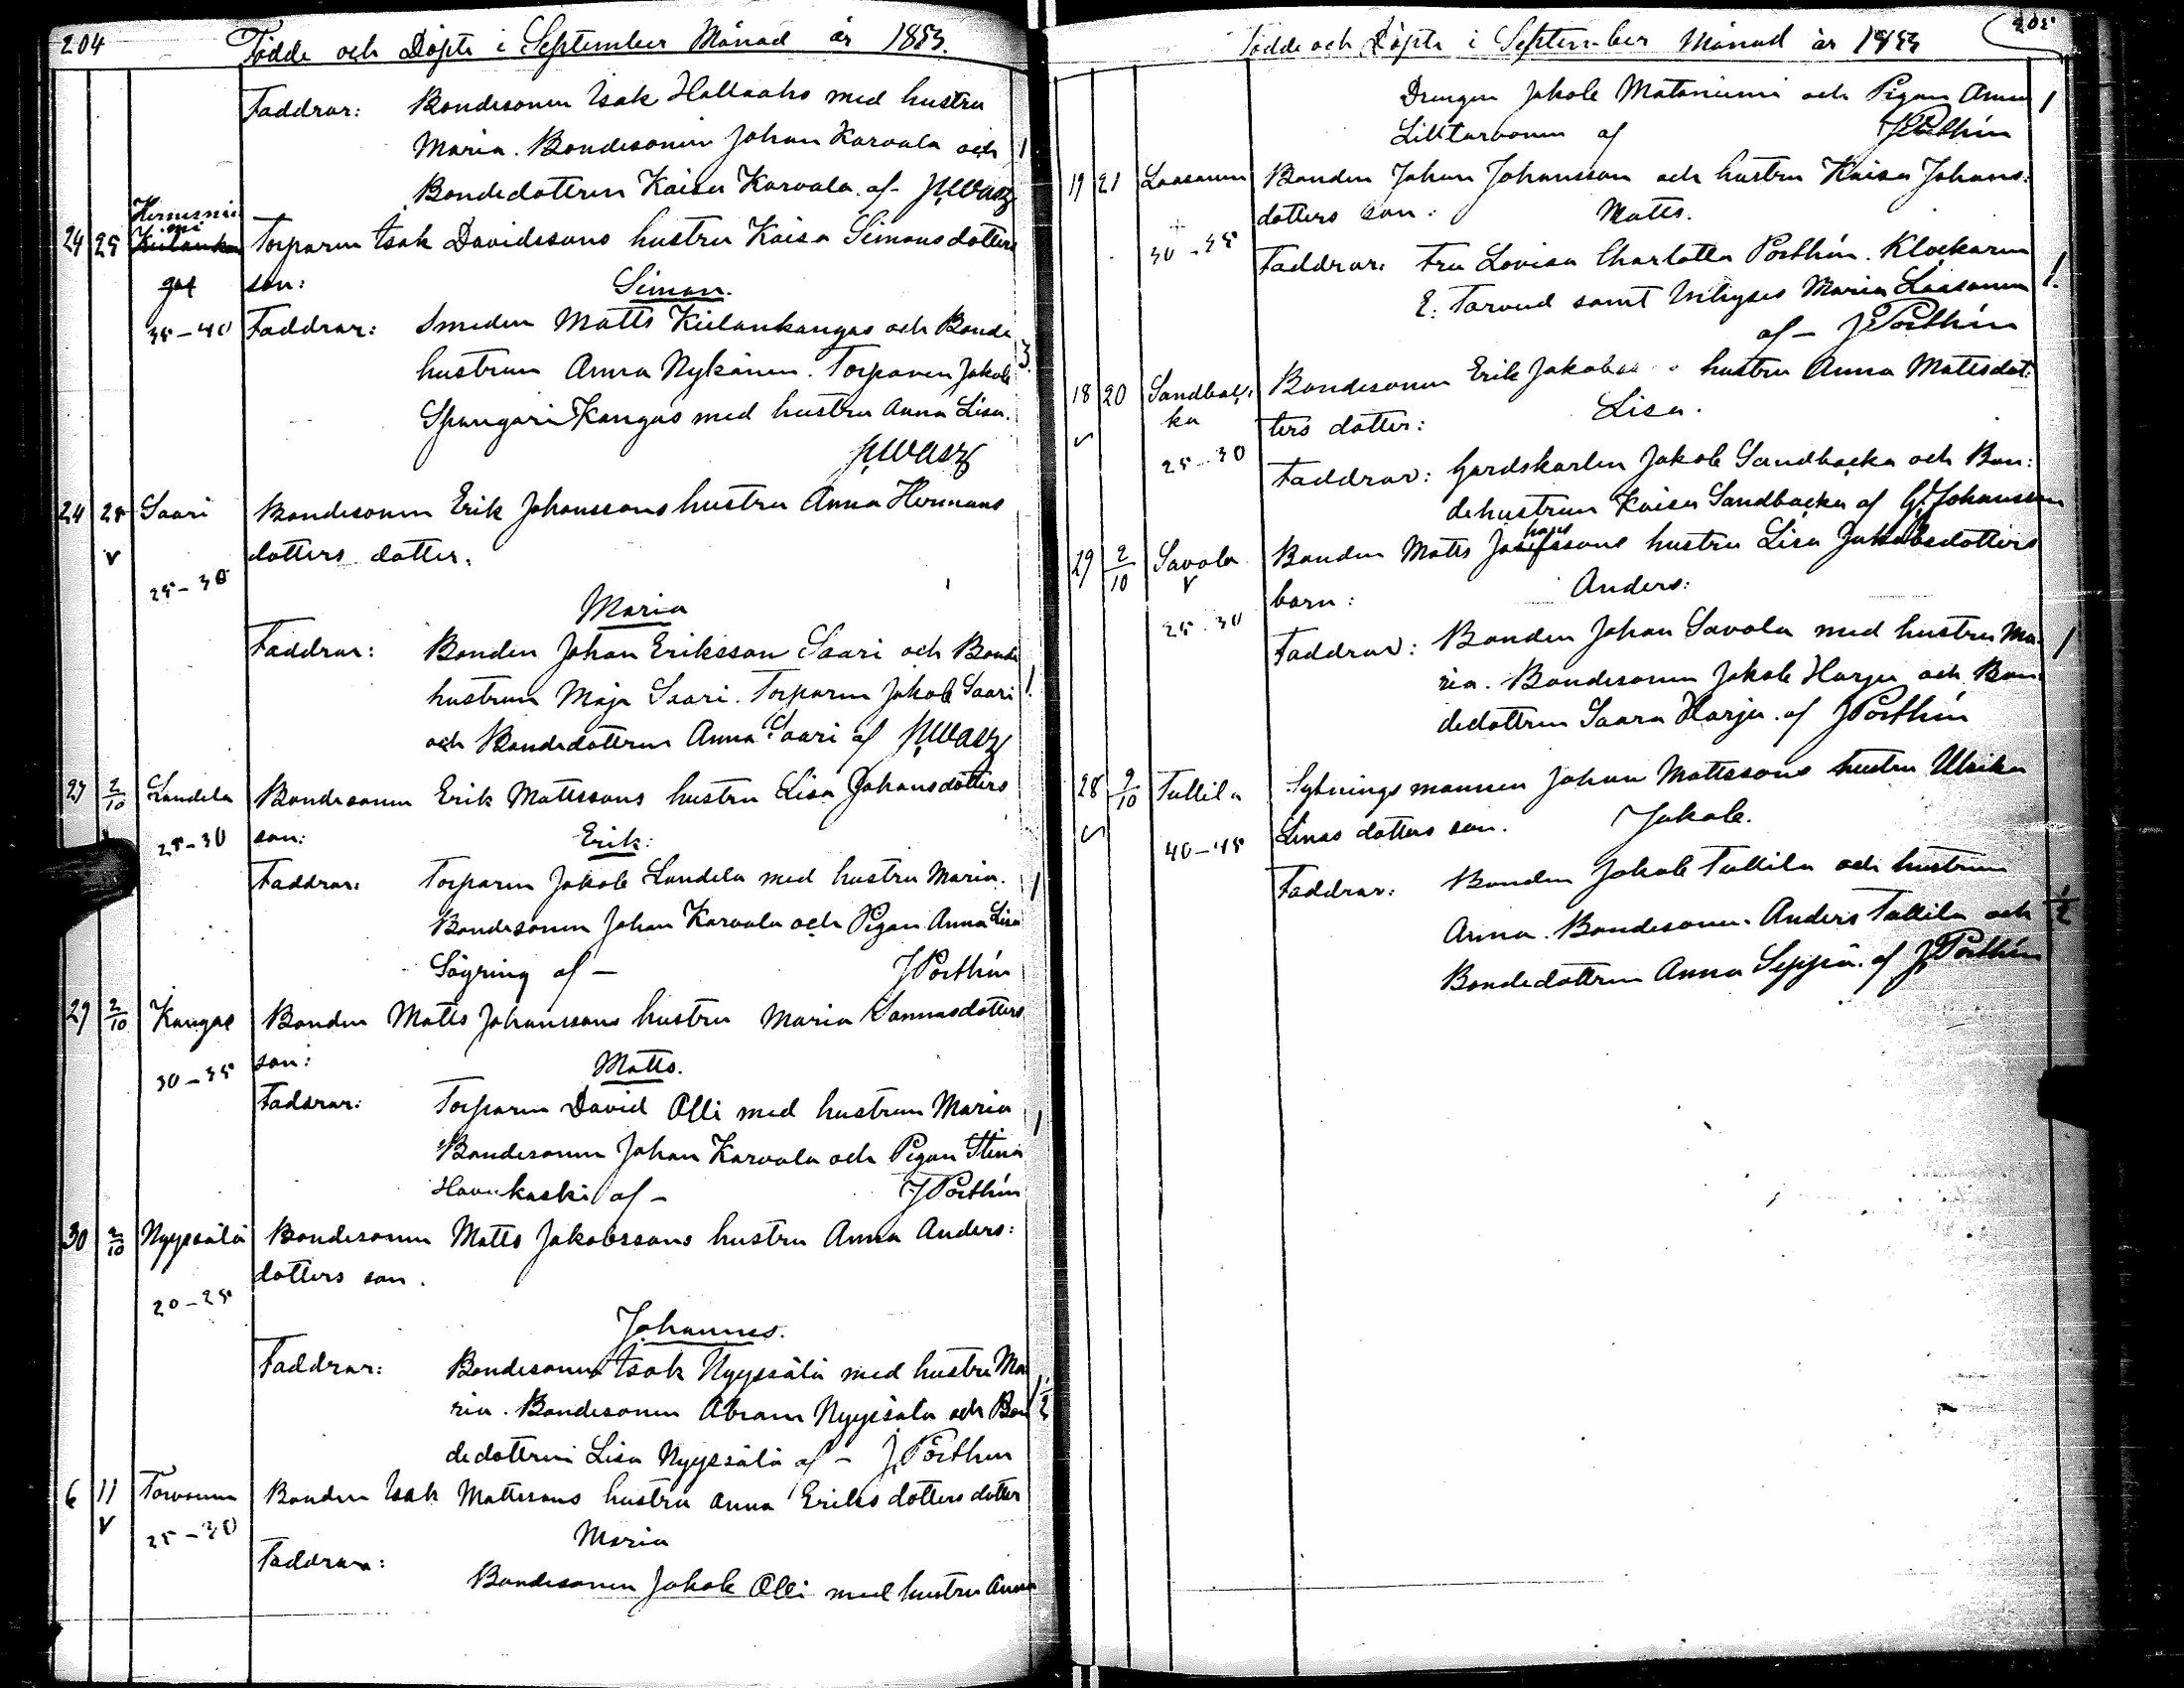 204
Födde och Döpte i September Månad år 1853.
Faddrar: Bondesonen Isak Hallaaho med hustru
Maria. Bondesonen Johan Karvala och 1
Bondedottren Kaisa Karvala. af
24 25 Torparen Isak Davidssons hustru Kaisa Simonsdotters
son: Simon.
35-40 Faddrar: Smeden Matts Kiilankangas och Bonde
hustrun Anna Nykänen. Torparen Jakob 3.
Spangari Kangas med hustru Anna Lisa.
24 25 Saari Bondesonen Erik Johanssons hustru Anna Hermans
v dotters dotter.
25-30
Maria
Faddrar: Bonden Johan Eriksson Saari och Bonde
hustrun Maja Saari. Torparen Jakob Saari 1.
och Bondedottren Anna Saari af
27 2/10 Landela Bondesonen Erik Mattssons hustru Lisa Johansdotters
25-30 son: Erik:
Faddrar: Torparen Jakob Landela med hustru Maria. 1
Bondesonen Johan Karvala och Pigan Anna Lisa
Sögring af - J Porthín
29 2/10 Kangas Bonden Matts Johanssons hustru Maria Sannasdotters
30-35 son: Matts.
Faddrar: Torparen David Olli med hustrun Maria 1
Bondesonen Johan Karvala och Pigan Stina
af - J Porthín
30 2/10 Nyyssälä Bondesonen Matts Jakobssons hustru Anna Anders:
dotters son.
20-25
Johannes.
Faddrar: Bondesonen Isak Nyyssälä med hustru Ma
ria. Bondesonen Abram Nyyssälä och Bon 1/2
dedottren Lisa Nyyssälä af - J. Porthen
6 11 Torvonen Bonden Isak Mattssons hustru Anna Eriksdotters dotter
v 25-30 Maria
Faddrar:
Bondesonen Jakob Olli med hustru Anna
205
Födde och Döpte i September Månad år 1853
Drengen Jakob Mataniemi och Pigan Anna 1
af J Porthín
19 21 Laasanen Bonden Johan Johansson och hustru Kaisa Johans:
dotters son: Matts.
30-35
Faddrar: Fru Lovisa Charlotta Porthín. Klockaren
E. Tarvud samt Inhyses Maria Laasanen 1.
af - J Porthín
18 20 Sandbac. Bondesonen Erik hustru Anna Mattsdot:
v ka ters dotter: Lisa.
25-30
Faddrar: Gardskarlen Jakob Sandbacka och Bon:
dehustrun Kaisa Sandbacka af G. Johansson
hans
29 2/10 Savola Bonden Matts Josefssons hustru Lisa Jakobsdotters
v barn: Anders:
25-30
Faddrar: Bonden Johan Savola med hustru Ma 1
ria. Bondesonen Jakob Harju och Bon
dedottren Saara Harju. af J Porthín
28 9/10 Tallila Sytningsmannen Johan Mattssons hustru Ulrika
v 40-45 Linasdotters son. Jakob.
Faddrar: Bonden Jakob Tallila och hustrun
Anna. Bondesonen Anders Tallila och 1/2
Bondedottren Anna Seppä. af J Porthín